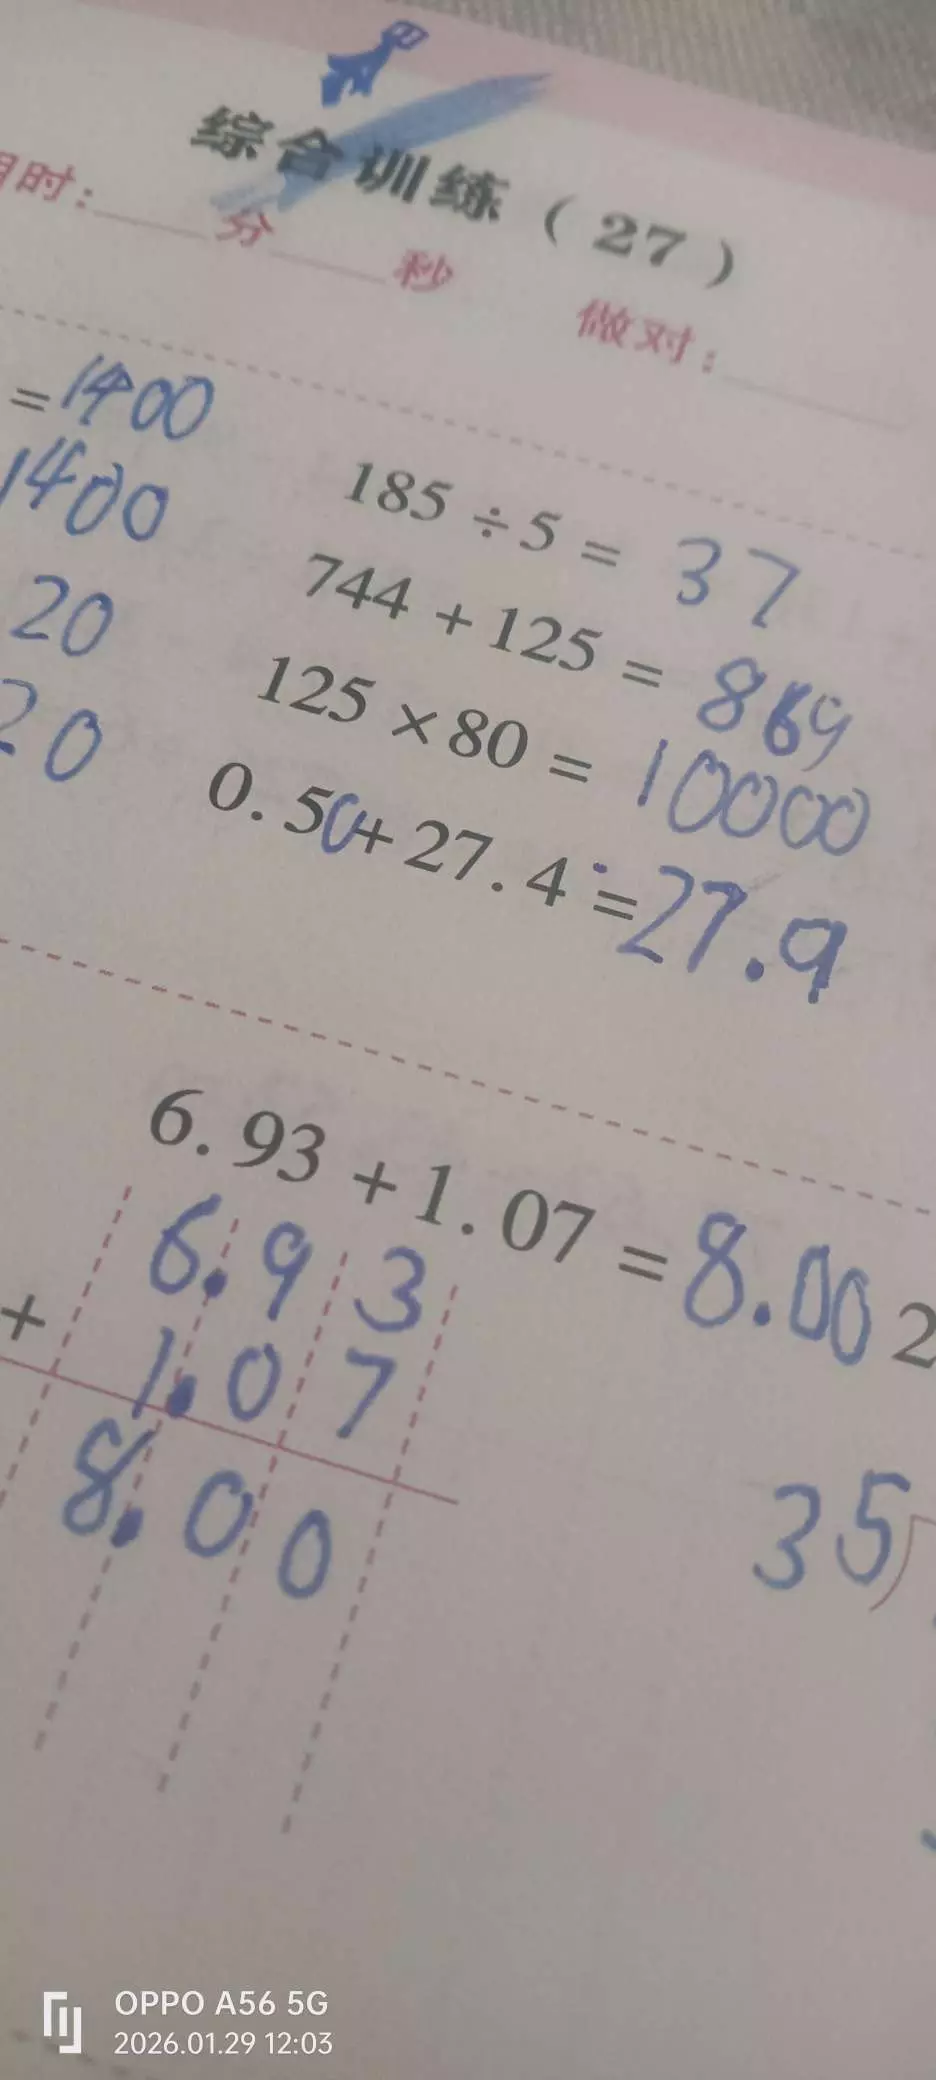 综合训练（27）
用时：____分____秒 做对：____
=1400
1400
20
20
185÷5=37
744+125=869
125×80=10000
0.50+27.4=27.9
6.93+1.07=8.00
2
6.93
+ 1.07
8.00
35
OPPO A56 5G
2026.01.29 12:03